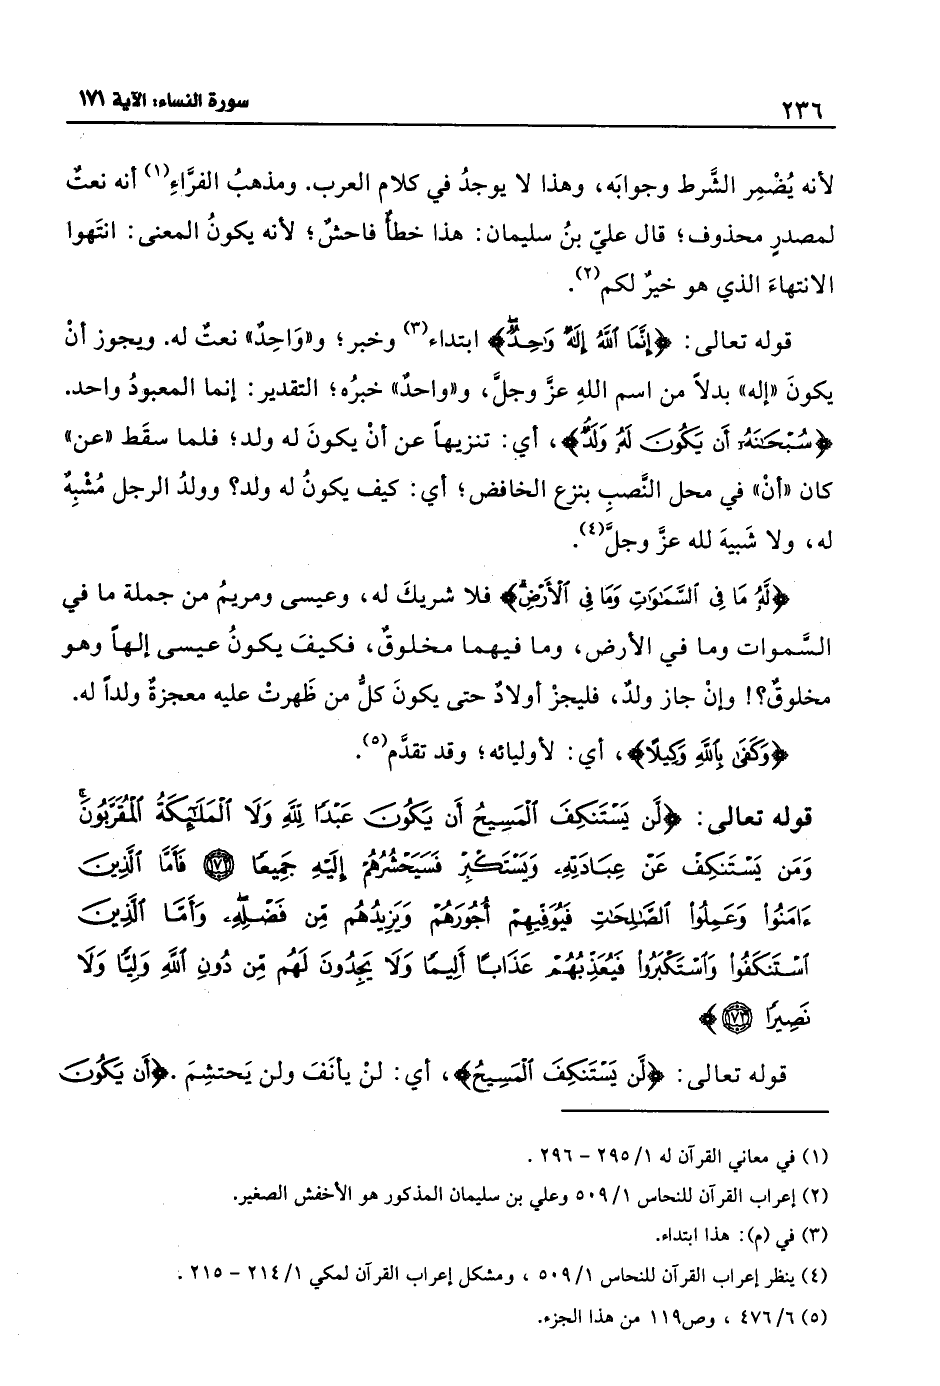 ٢٣٦
سورة النساء: الآية ١٧١
لأنه يُضْمِر الشَّرط وجوابَه، وهذا لا يوجدُ في كلام العرب. ومذهبُ الفرَّاءِ(١) أنه نعتٌ
لمصدرٍ محذوف؛ قال عليّ بنُ سليمان: هذا خطأٌ فاحشٌ؛ لأنه يكونُ المعنى: انتَهوا
الانتهاءَ الذي هو خيرٌ لكم(٢).
قوله تعالى: ﴿إِنَّمَا ٱللَّهُ إِلَٰهٌ وَٰحِدٌ﴾ ابتداء(٣) وخبر؛ و«وَاحِدٌ» نعتٌ له. ويجوز أنْ
يكونَ «إله» بدلاً من اسم اللهِ عزَّ وجلَّ، و«واحدٌ» خبرُه؛ التقدير: إنما المعبودُ واحد.
﴿سُبْحَٰنَهُۥٓ أَن يَكُونَ لَهُۥ وَلَدٌ﴾، أي: تنزيهاً عن أنْ يكونَ له ولد؛ فلما سقَط «عن»
كان «أنْ» في محل النَّصبِ بنزع الخافض؛ أي: كيف يكونُ له ولد؟ وولدُ الرجل مُشْبِهٌ
له، ولا شَبيهَ لله عزَّ وجلَّ(٤).
﴿لَّهُۥ مَا فِى ٱلسَّمَٰوَٰتِ وَمَا فِى ٱلْأَرْضِ﴾ فلا شريكَ له، وعيسى ومريمُ من جملة ما في
السَّموات وما في الأرض، وما فيهما مخلوقٌ، فكيفَ يكونُ عيسى إلهاً وهو
مخلوقٌ؟! وإنْ جاز ولدٌ، فليجزْ أولادٌ حتى يكونَ كلُّ من ظَهرتْ عليه معجزةٌ ولداً له.
﴿وَكَفَىٰ بِٱللَّهِ وَكِيلًا﴾، أي: لأوليائه؛ وقد تقدَّم(٥).
قوله تعالى: ﴿لَّن يَسْتَنكِفَ ٱلْمَسِيحُ أَن يَكُونَ عَبْدًا لِّلَّهِ وَلَا ٱلْمَلَٰٓئِكَةُ ٱلْمُقَرَّبُونَ ۚ
وَمَن يَسْتَنكِفْ عَنْ عِبَادَتِهِۦ وَيَسْتَكْبِرْ فَسَيَحْشُرُهُمْ إِلَيْهِ جَمِيعًا ١٧٢ فَأَمَّا ٱلَّذِينَ
ءَامَنُوا۟ وَعَمِلُوا۟ ٱلصَّٰلِحَٰتِ فَيُوَفِّيهِمْ أُجُورَهُمْ وَيَزِيدُهُم مِّن فَضْلِهِۦ وَأَمَّا ٱلَّذِينَ
ٱسْتَنكَفُوا۟ وَٱسْتَكْبَرُوا۟ فَيُعَذِّبُهُمْ عَذَابًا أَلِيمًا وَلَا يَجِدُونَ لَهُم مِّن دُونِ ٱللَّهِ وَلِيًّا وَلَا
نَصِيرًا ١٧٣﴾
قوله تعالى: ﴿لَّن يَسْتَنكِفَ ٱلْمَسِيحُ﴾، أي: لنْ يأنَفَ ولن يَحتشِمَ. ﴿أَن يَكُونَ
(١) في معاني القرآن له ٢٩٥/١ – ٢٩٦ .
(٢) إعراب القرآن للنحاس ٥٠٩/١ وعلي بن سليمان المذكور هو الأخفش الصغير.
(٣) في (م): هذا ابتداء.
(٤) ينظر إعراب القرآن للنحاس ٥٠٩/١ ، ومشكل إعراب القرآن لمكي ٢١٤/١ – ٢١٥ .
(٥) ٤٧٦/٦ ، وص١١٩ من هذا الجزء.